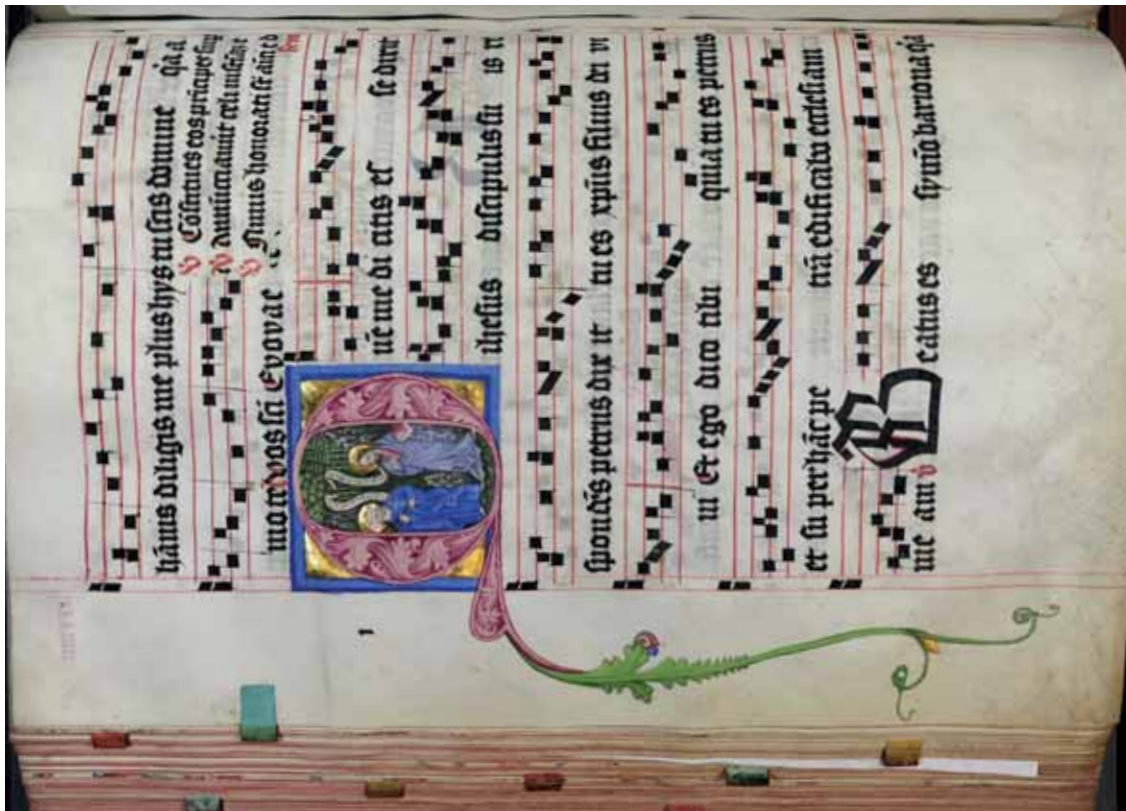 hānis diligis me plus hys tu scis domine q̄a a
Cōstitues eos pricipes sup
Nimis honorati
mo te Evovae
Q uē me di citis es se dixit
ihesus discipulis su is
spondēs petrus dix it tu es xp̄us filius dei vi
ui Et ego dico tibi quia tu es petrus
et su per hāc pe trā edificabo ecclesiam
me am ℣ B eatus es symō bariona q̄a